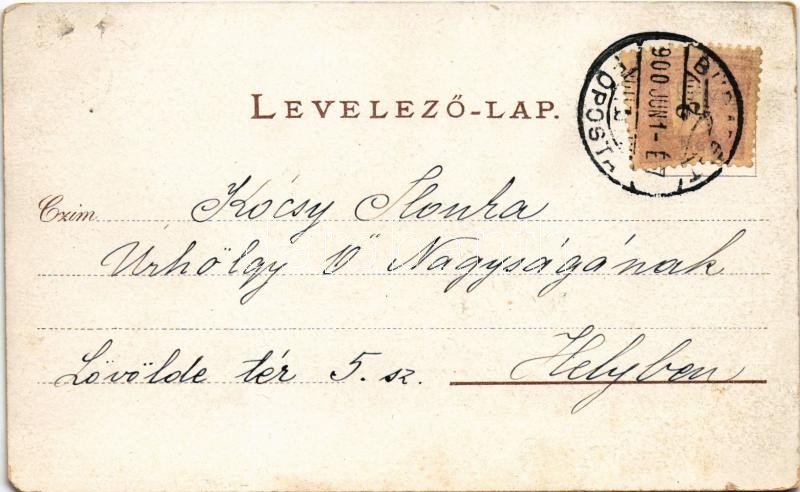 LEVELEZŐ-LAP.
BUDAPEST
FŐPOSTA
900 JUN 1 - E 7
Czim Kócsy Ilonka
Urhölgy Ő Nagyságának
Lövölde tér 5. sz. Helyben